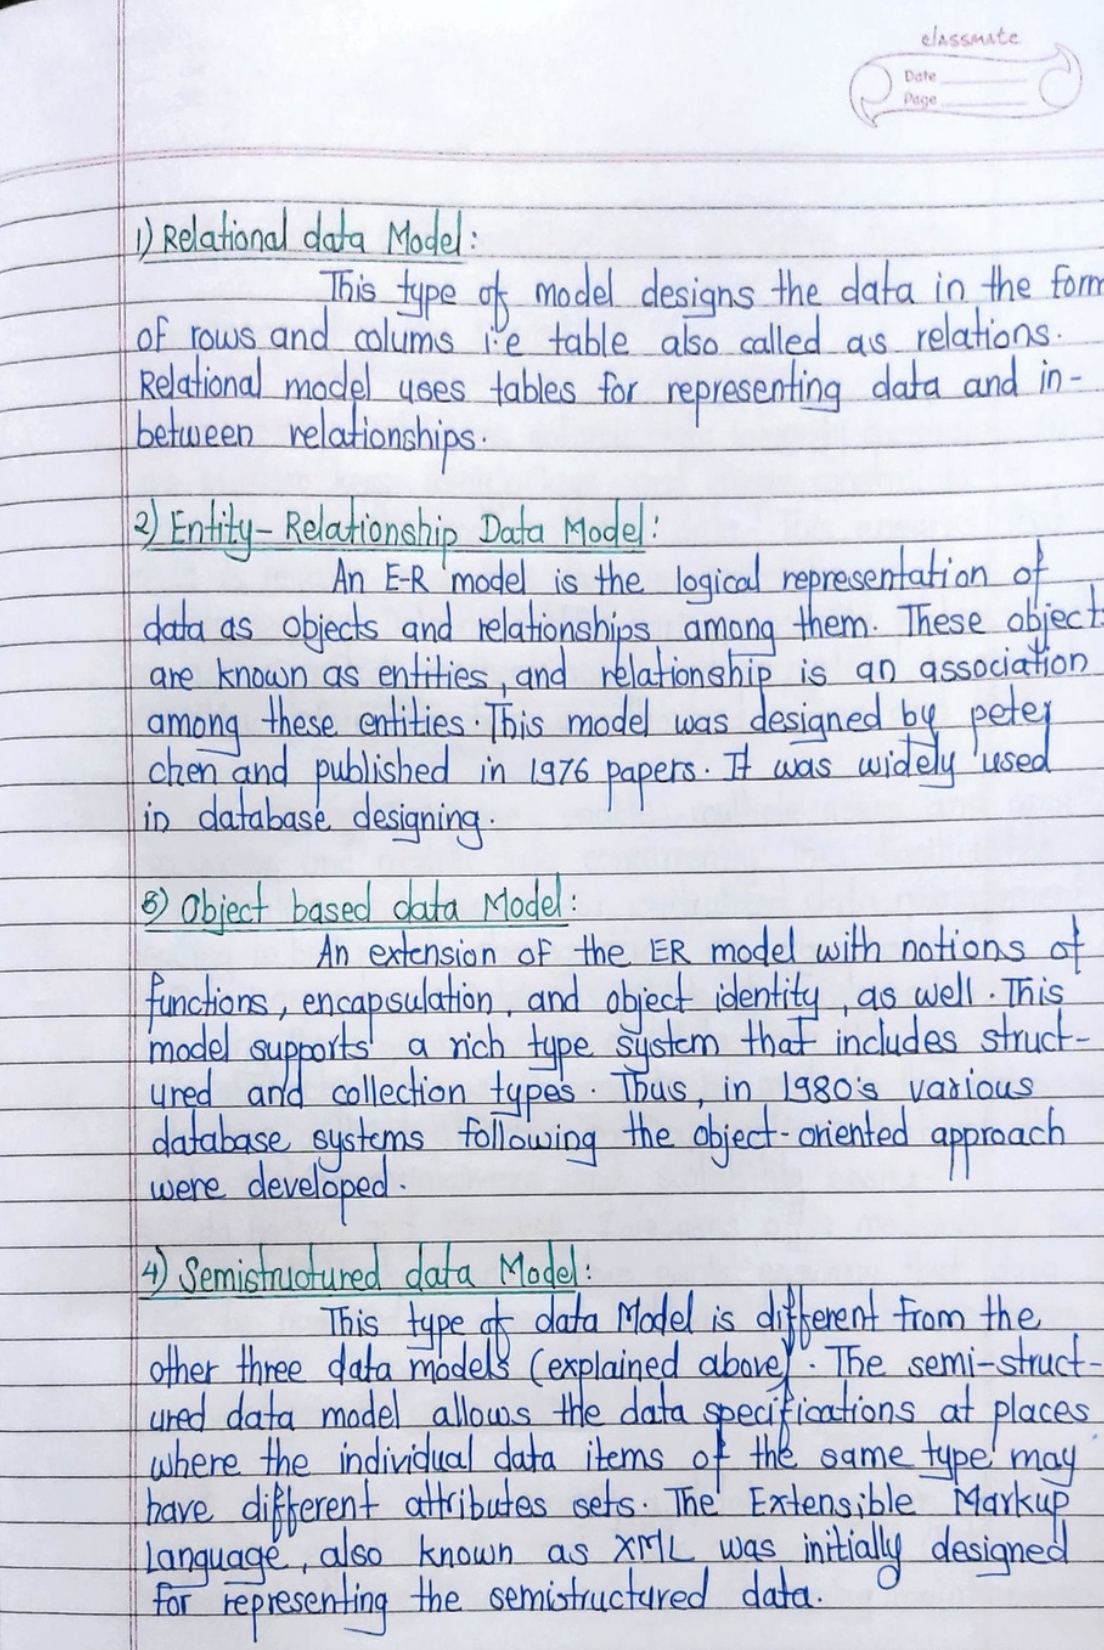 classmate
Date
Page
1) Relational data Model:
This type of model designs the data in the form
of rows and colums i.e table also called as relations.
Relational model uses tables for representing data and in-
between relationships.
2) Entity-Relationship Data Model:
An E-R model is the logical representation of
data as objects and relationships among them. These objects
are known as entities, and relationship is an association
among these entities. This model was designed by peter
chen and published in 1976 papers. It was widely used
in database designing.
3) Object based data Model:
An extension of the ER model with notions of
functions, encapsulation, and object identity, as well. This
model supports a rich type system that includes struct-
ured and collection types. Thus, in 1980's various
database systems following the object-oriented approach
were developed.
4) Semistructured data Model:
This type of data Model is different from the
other three data models (explained above). The semi-struct-
ured data model allows the data specifications at places
where the individual data items of the same type may
have different attributes sets. The Extensible Markup
Language, also known as XML was initially designed
for representing the semistructured data.